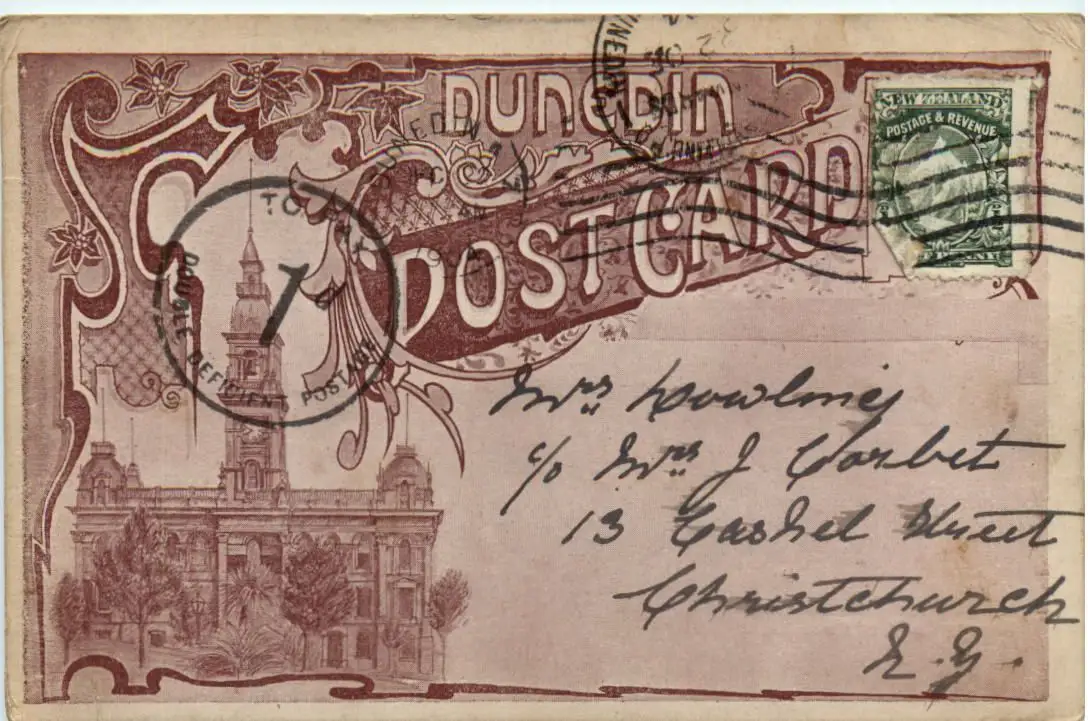 DUNEDIN
POSTCARD
NEW ZEALAND
POSTAGE & REVENUE
PENNY
DUNEDIN
DUNEDIN
TO PAY
1D
DOUBLE DEFICIENT POSTAGE
Mrs Dowling
c/o Mrs J Corbet
13 Cashel Street
Christchurch
N.Z.